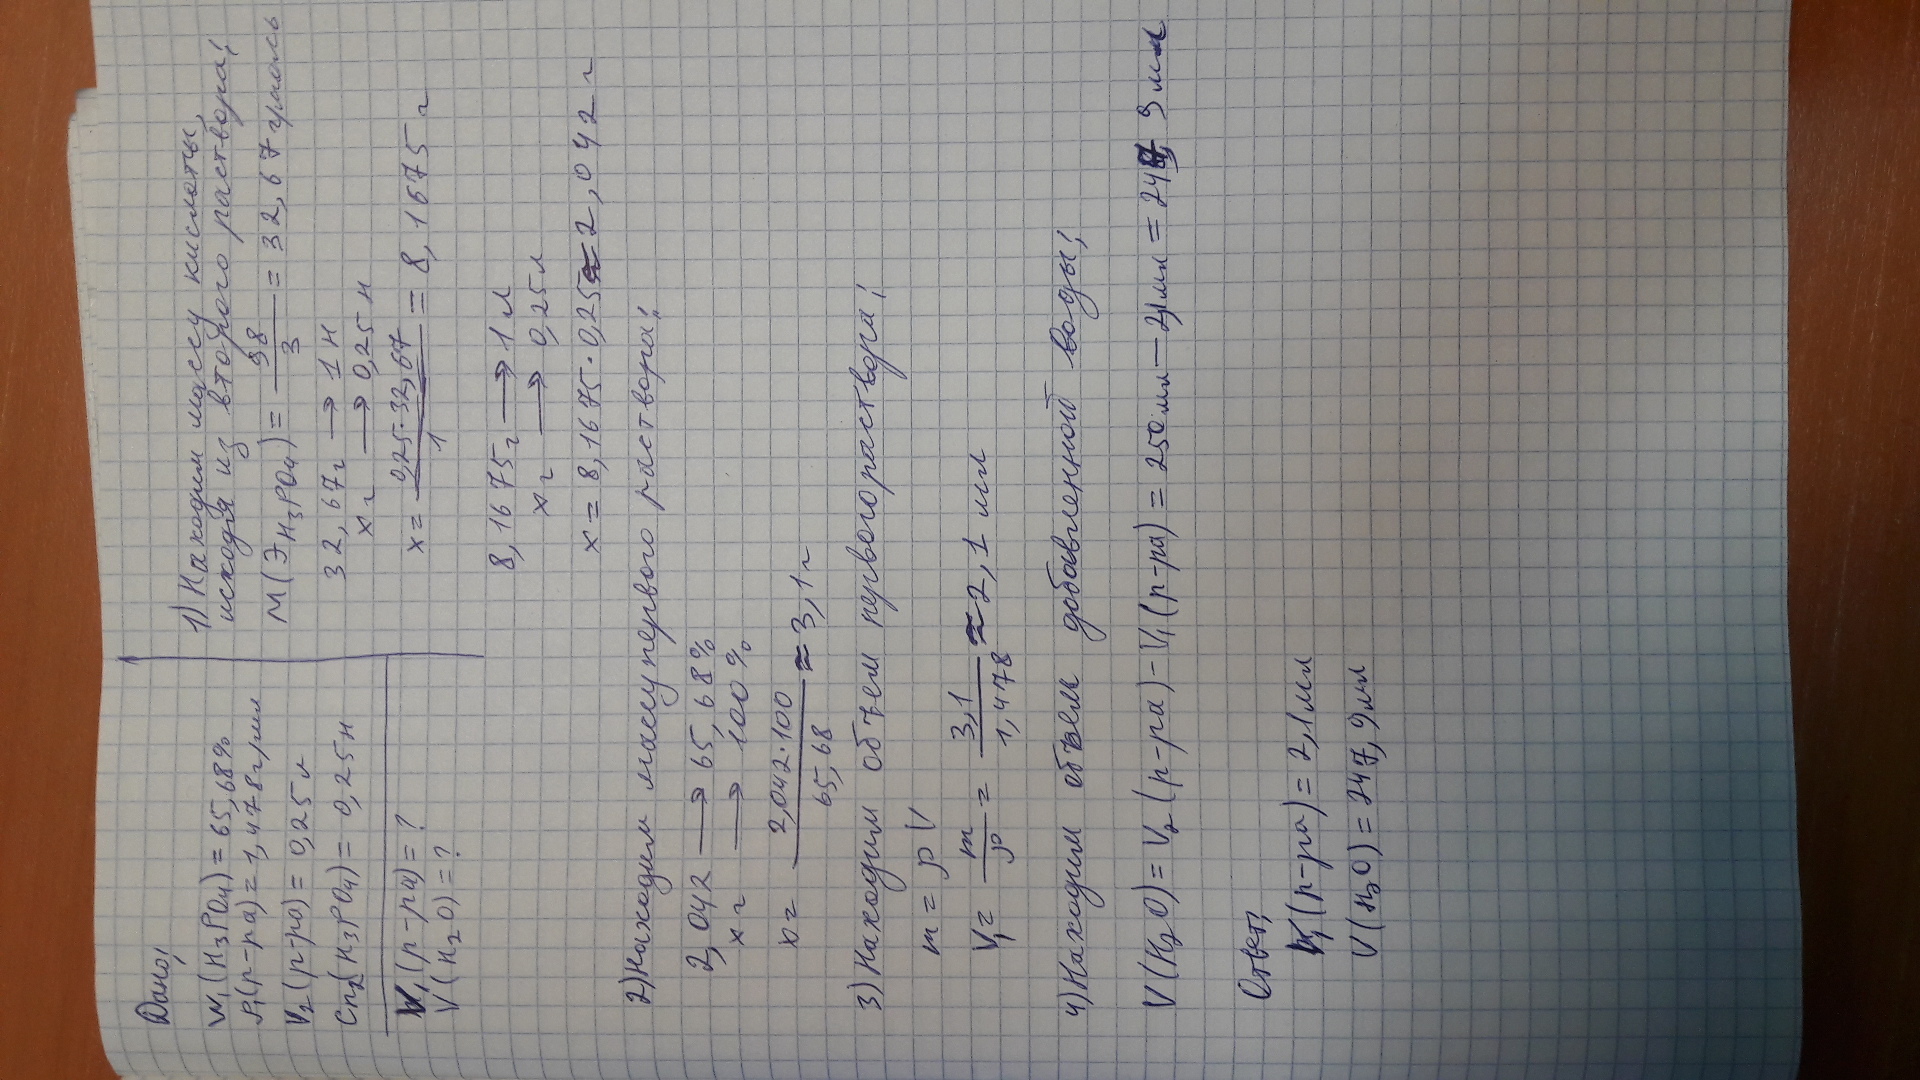 Дано:
W₁(H₃PO₄) = 65,68%
ρ₁(р-ра) = 1,478 г/мл
V₂(р-ра) = 0,25 л
Cn₂(H₃PO₄) = 0,25 н
V₁(р-ра) = ?
V(H₂O) = ?
1) Находим массу кислоты,
исходя из второго раствора:
M(Э H₃PO₄) = 98/3 = 32,67 г/моль
32,67 г → 1 н
x г → 0,25 н
x = 0,25·32,67/1 = 8,1675 г
8,1675 г → 1 л
x г → 0,25 л
x = 8,1675·0,25 = 2,042 г
2) Находим массу первого раствора:
2,042 → 65,68%
x г → 100%
x = 2,042·100/65,68 ≈ 3,1 г
3) Находим объем первого раствора:
m = ρV
V₁ = m/ρ = 3,1/1,478 ≈ 2,1 мл
4) Находим объем добавленной воды:
V(H₂O) = V₂(р-ра) - V₁(р-ра) = 250 мл - 2,1 мл = 247,9 мл
Ответ:
V₁(р-ра) = 2,1 мл
V(H₂O) = 247,9 мл